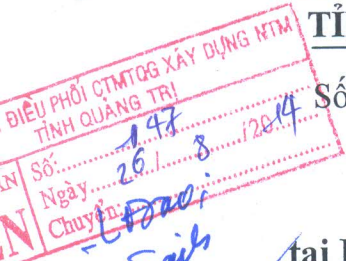 TỈ
ĐIỀU PHỐI CTMTQG XÂY DỰNG NTM
TỈNH QUẢNG TRỊ
Số
Số: 147
Ngày 26 / 8 /2014
Chuyển:
tại